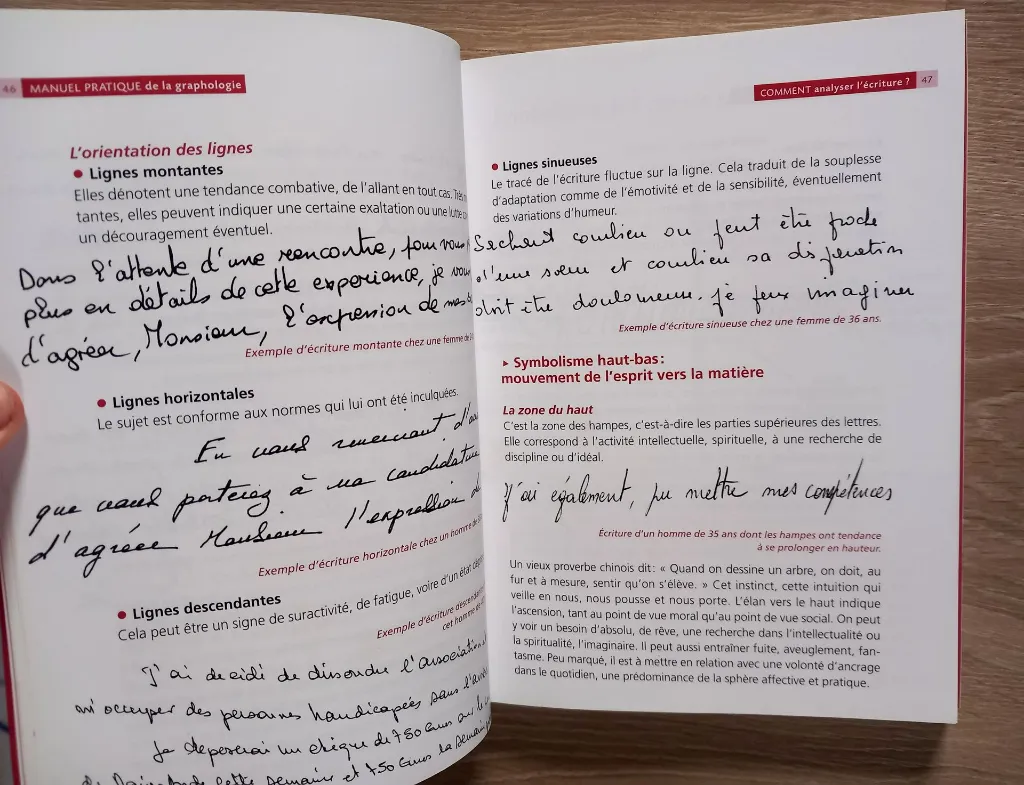 46 MANUEL PRATIQUE de la graphologie
L'orientation des lignes
• Lignes montantes
Elles dénotent une tendance combative, de l'allant en tout cas. Très
tantes, elles peuvent indiquer une certaine exaltation ou une lutte
un découragement éventuel.
Dans l'attente d'une rencontre, pour vous
plus en détails de cette experience, je vous
d'agréer, Monsieur, l'expression de mes
Exemple d'écriture montante chez une femme de
• Lignes horizontales
Le sujet est conforme aux normes qui lui ont été inculquées.
En vous remerciant
que vous porterez à ma candidature
d'agréer Monsieur l'expression
Exemple d'écriture horizontale chez un homme de
• Lignes descendantes
Cela peut être un signe de suractivité, de fatigue, voire d'un état
Exemple d'écriture descendante
cet homme
J'ai decidé de dissoudre l'association
m'occuper des personnes handicapées dans
Je deposerai un chèque de 750 euros sur
cette semaine et 750 euros la semaine
COMMENT analyser l'écriture ? 47
• Lignes sinueuses
Le tracé de l'écriture fluctue sur la ligne. Cela traduit de la souplesse
d'adaptation comme de l'émotivité et de la sensibilité, éventuellement
des variations d'humeur.
Sachant combien on peut être proche
d'une sœur et combien sa disparition
doit être douloureuse, je peux imaginer
Exemple d'écriture sinueuse chez une femme de 36 ans.
▸ Symbolisme haut-bas :
mouvement de l'esprit vers la matière
La zone du haut
C'est la zone des hampes, c'est-à-dire les parties supérieures des lettres.
Elle correspond à l'activité intellectuelle, spirituelle, à une recherche de
discipline ou d'idéal.
J'ai également, pu mettre mes compétences
Écriture d'un homme de 35 ans dont les hampes ont tendance
à se prolonger en hauteur.
Un vieux proverbe chinois dit : « Quand on dessine un arbre, on doit, au
fur et à mesure, sentir qu'on s'élève. » Cet instinct, cette intuition qui
veille en nous, nous pousse et nous porte. L'élan vers le haut indique
l'ascension, tant au point de vue moral qu'au point de vue social. On peut
y voir un besoin d'absolu, de rêve, une recherche dans l'intellectualité ou
la spiritualité, l'imaginaire. Il peut aussi entraîner fuite, aveuglement, fan-
tasme. Peu marqué, il est à mettre en relation avec une volonté d'ancrage
dans le quotidien, une prédominance de la sphère affective et pratique.